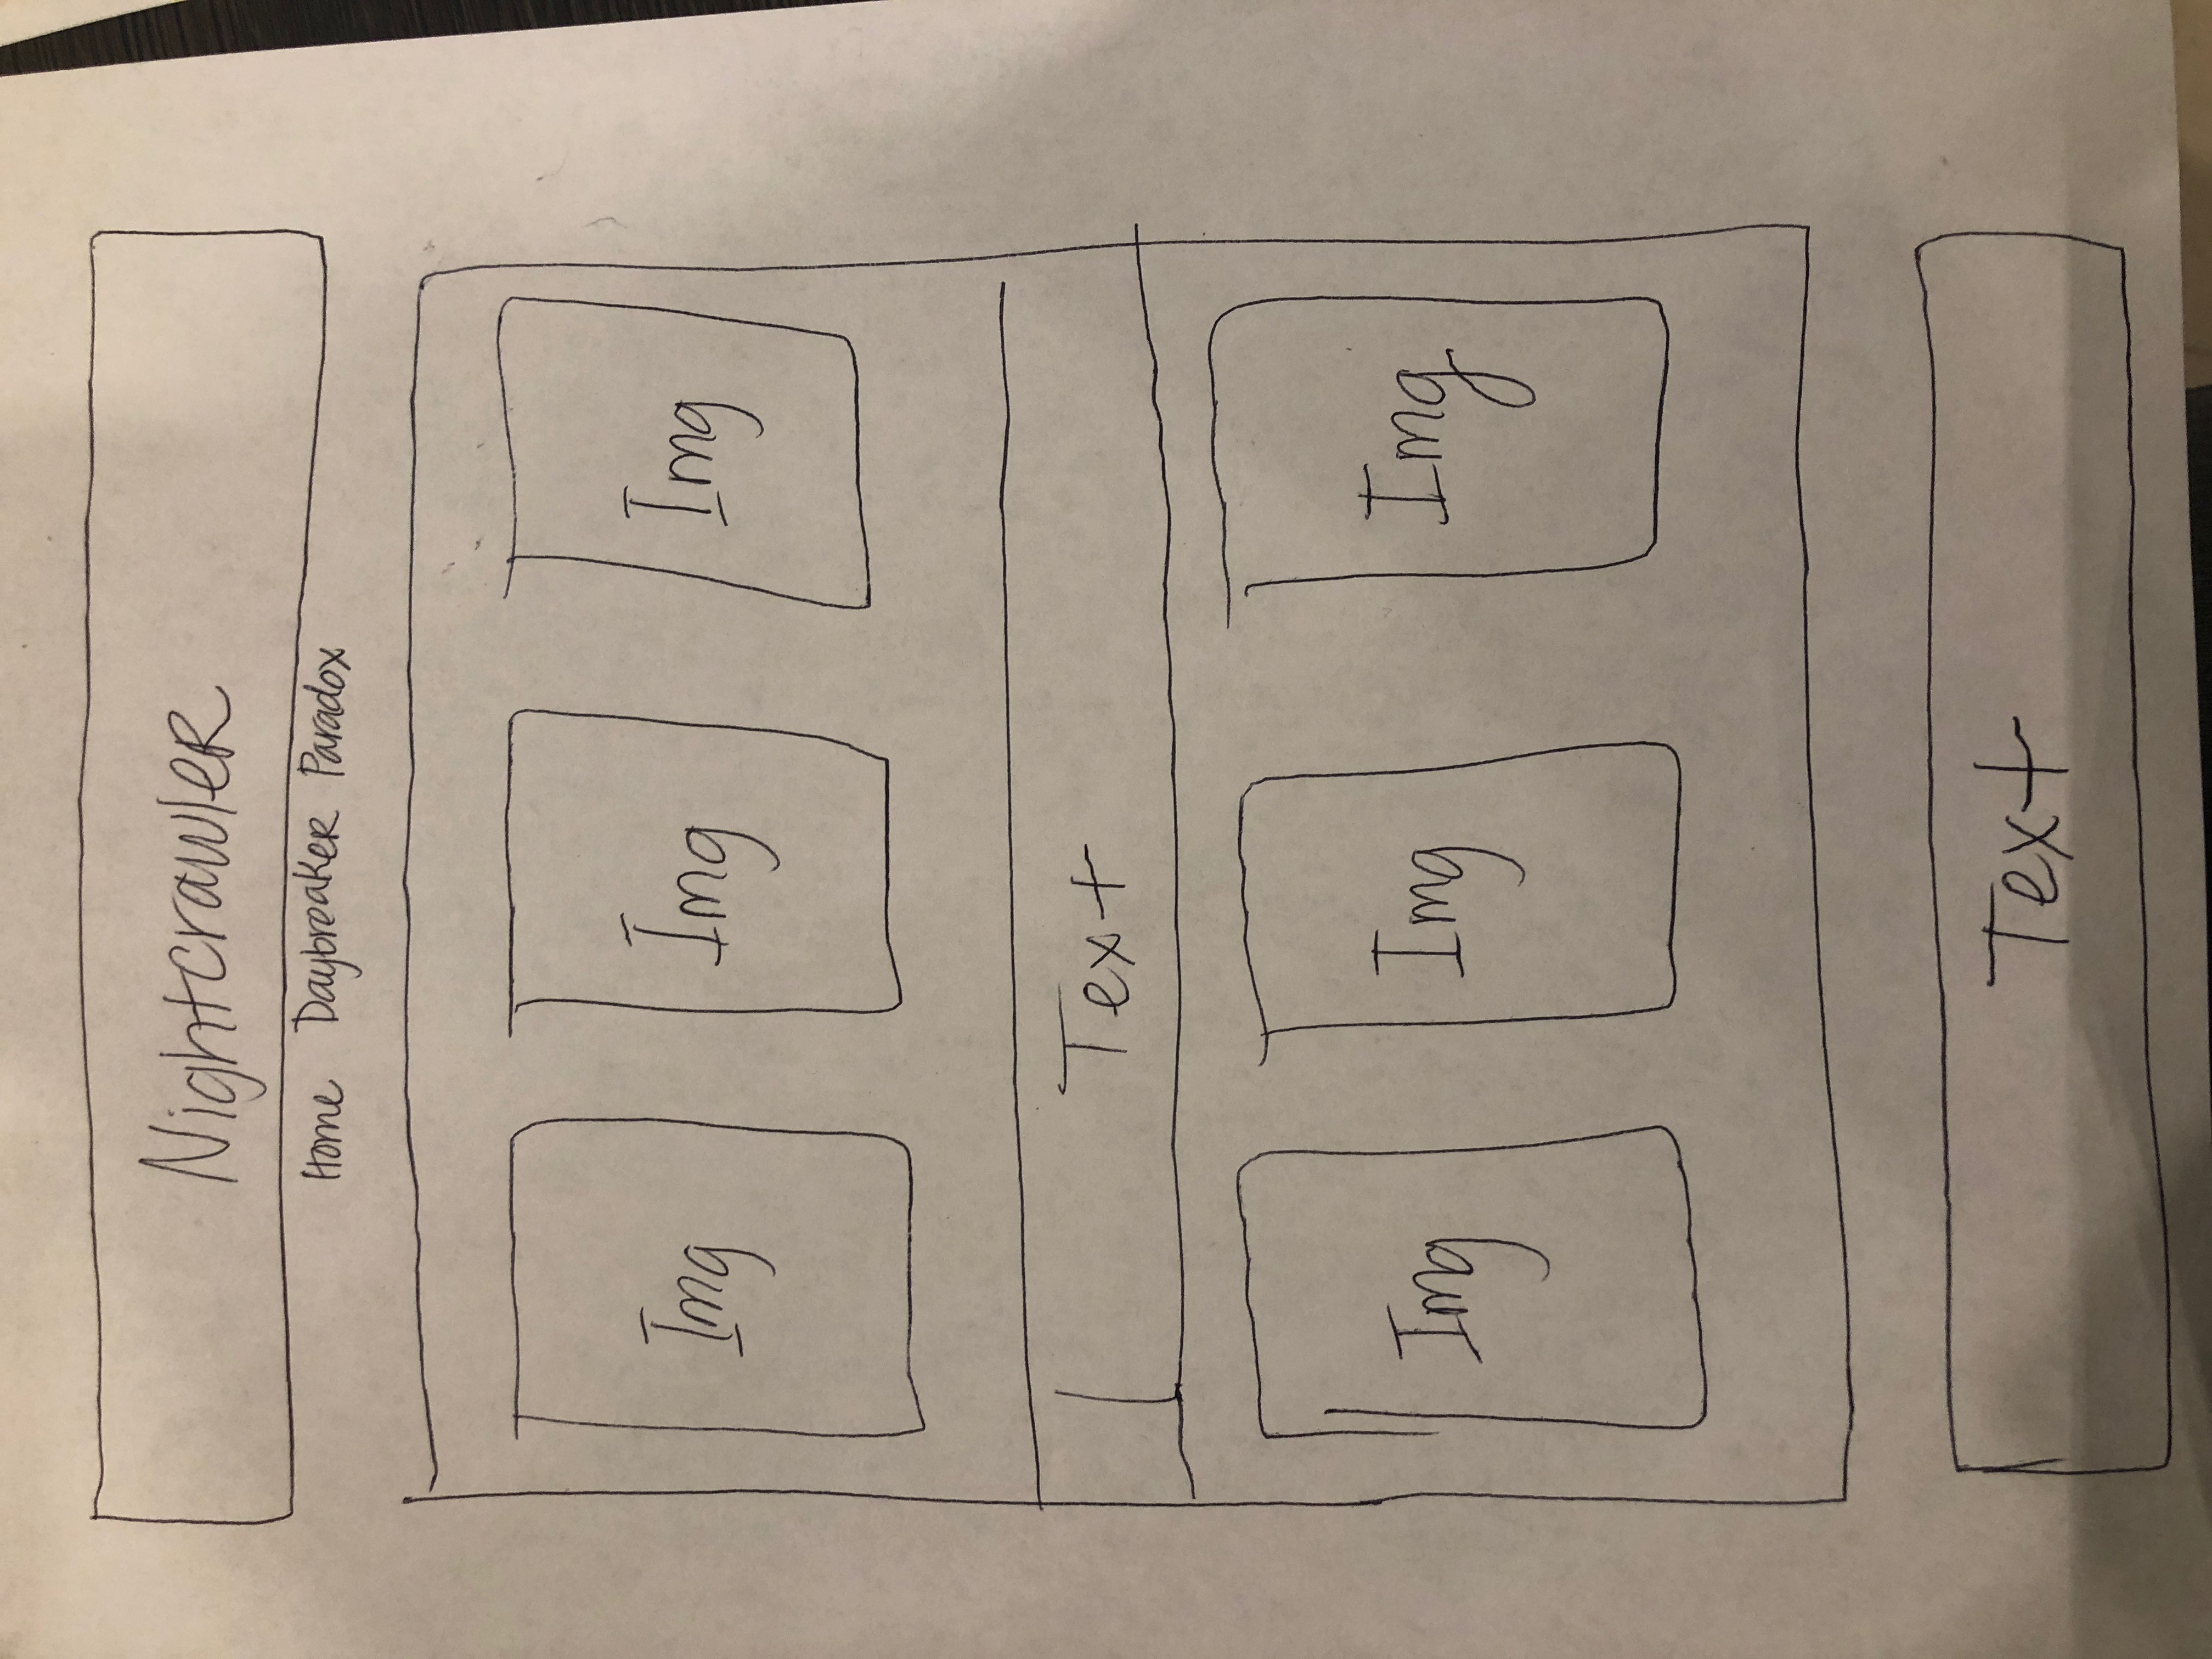 Nightcrawler
Home Daybreaker Paradox
Img Img Img
Text
Img Img Img
Text